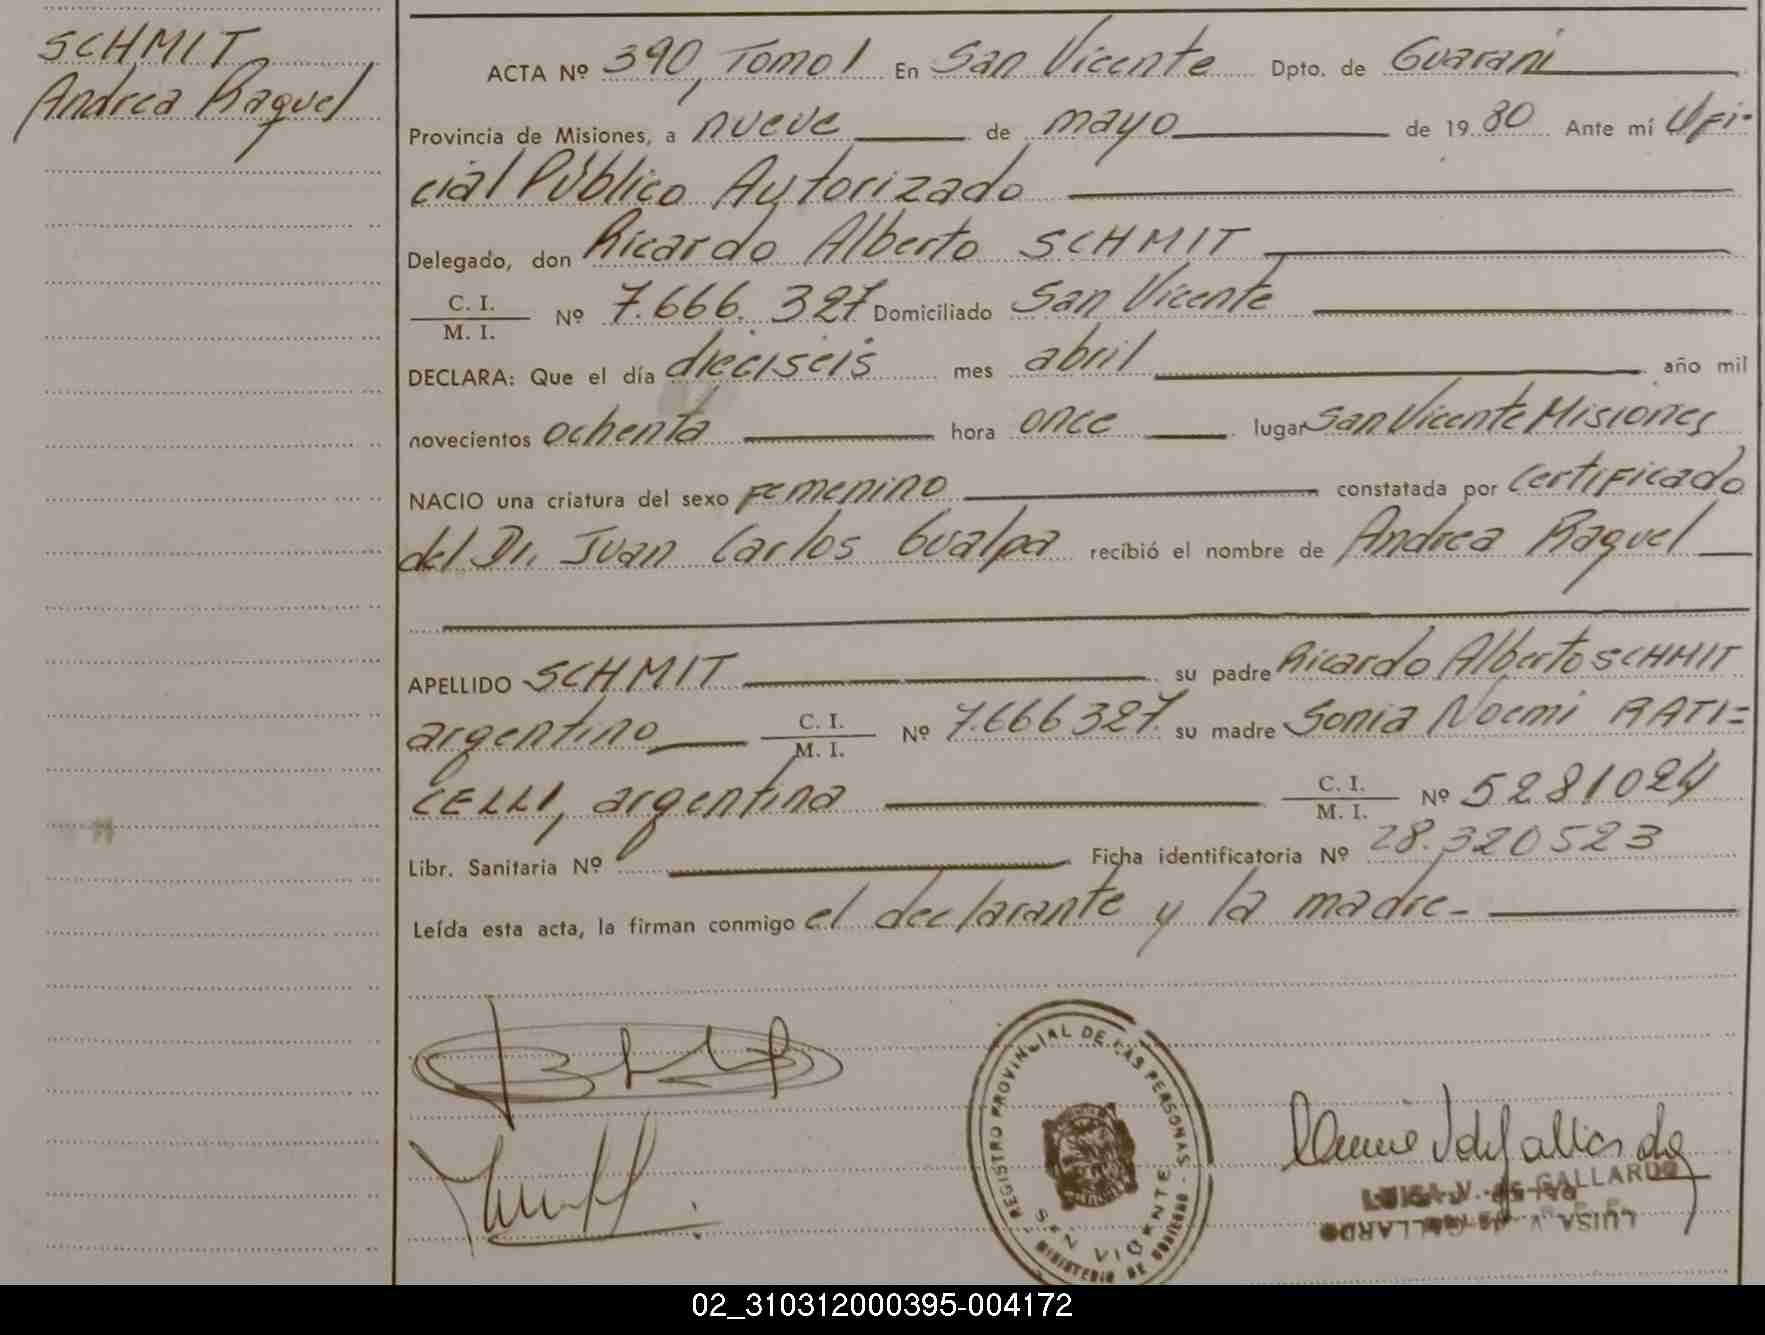 SCHMIT
Andrea Raquel
ACTA Nº 390, Tomo I En San Vicente Dpto. de Guaraní
Provincia de Misiones, a nueve de mayo de 19 80 Ante mí Ofi-
cial Público Autorizado
Delegado, don Ricardo Alberto SCHMIT
C. I.
M. I. Nº 7.666.327 Domiciliado San Vicente
DECLARA: Que el día dieciseis mes abril año mil
novecientos ochenta hora once lugar San Vicente Misiones
NACIO una criatura del sexo Femenino constatada por certificado
del Dr. Juan Carlos Gualpa recibió el nombre de Andrea Raquel
APELLIDO SCHMIT su padre Ricardo Alberto SCHMIT
argentino C. I. M. I. Nº 7.666327 su madre Sonia Noemi RATI=
CELLI, argentina C. I. M. I. Nº 5281024
Libr. Sanitaria Nº Ficha identificatoria Nº 28.320523
Leída esta acta, la firman conmigo el declarante y la madre-
REGISTRO PROVINCIAL DE LAS PERSONAS - MINISTERIO DE GOBIERNO -
SAN VICENTE
LUISA V. de GALLARDO
LUISA V. de GALLARDO
02_310312000395-004172